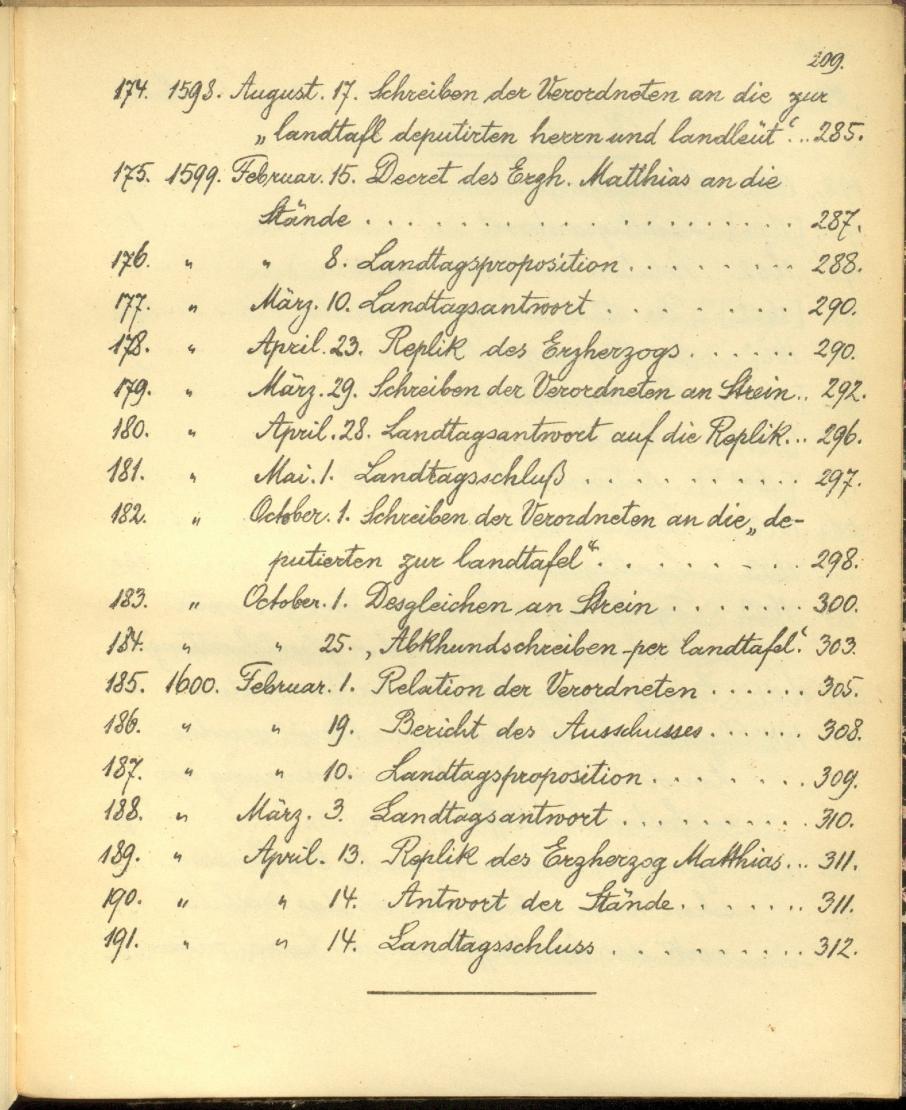 209.
174. 1598. August. 17. Schreiben der Verordneten an die zur
„landtafl deputirten herrn und landleüt“. .. 285.
175. 1599. Februar. 15. Decret des Ergh. Matthias an die
Stände . . . . . . . . . . . . . . . . . . 287.
176. " " 8. Landtagsproposition . . . . . . . . 288.
177. " März. 10. Landtagsantwort . . . . . . . 290.
178. " April. 23. Replik des Erzherzogs . . . . . . 290.
179. " März. 29. Schreiben der Verordneten an Strein .. 292.
180. " April. 28. Landtagsantwort auf die Replik... 296.
181. " Mai. 1. Landtagsschluß . . . . . . . . . . 297.
182. " October. 1. Schreiben der Verordneten an die „de-
putierten zur landtafel“. . . . . . . . . 298.
183. " October. 1. Desgleichen an Strein . . . . . . . 300.
184. " " 25. „Abkhundschreiben per landtafel“. 303.
185. 1600. Februar. 1. Relation der Verordneten . . . . . . 305.
186. " " 19. Bericht des Ausschusses . . . . . . 308.
187. " " 10. Landtagsproposition . . . . . . . 309.
188. " März. 3. Landtagsantwort . . . . . . . . . 310.
189. " April. 13. Replik des Erzherzog Matthias... 311.
190. " " 14. Antwort der Stände . . . . . . . 311.
191. " " 14. Landtagsschluss . . . . . . . . . . 312.